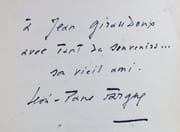 à Jean Giraudoux
avec tant de souvenirs...
son vieil ami.
Léon-Paul Fargue